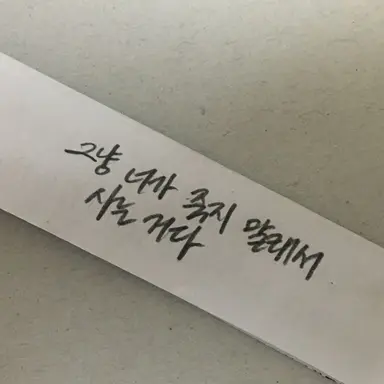 그냥 너가 죽지 말래서
사는 거다